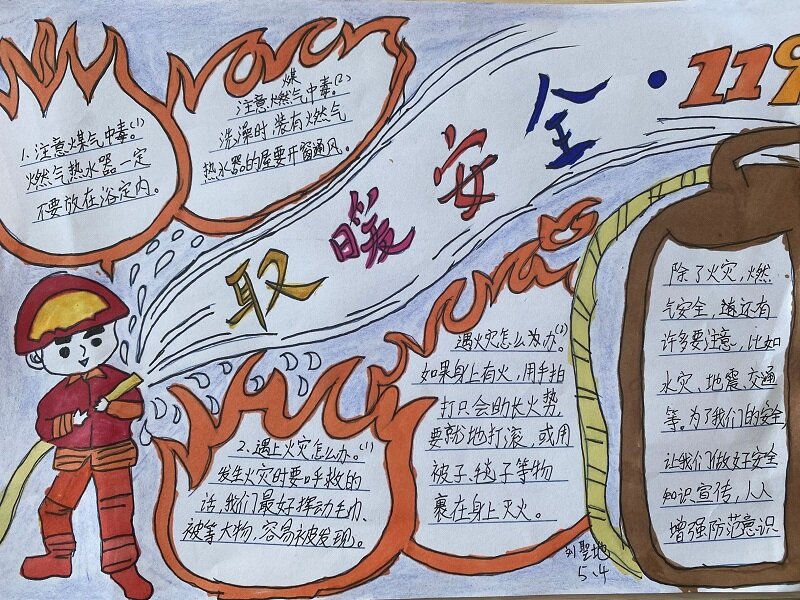 取暖安全·119
1.注意煤气中毒。(1)
燃气热水器一定
不要放在浴定内。
煤
注意燃气中毒。(2)
洗澡时装有燃气
热水器的屋要开窗通风。
2.遇上火灾怎么办。(1)
发生火灾时要呼救的
话,我们最好挥动毛巾、
被等大物,容易被发现。
遇火灾怎么为办。(2)
如果身上有火,用手拍
打只会助长火势,
要就地打滚,或用
被子、毯子等物
裹在身上灭火。
除了火灾,燃
气安全,还有
许多要注意,比如
水灾、地震、交通
等。为了我们的安全,
让我们做好安全
知识宣传,人人
增强防范意识
圣地
5.4